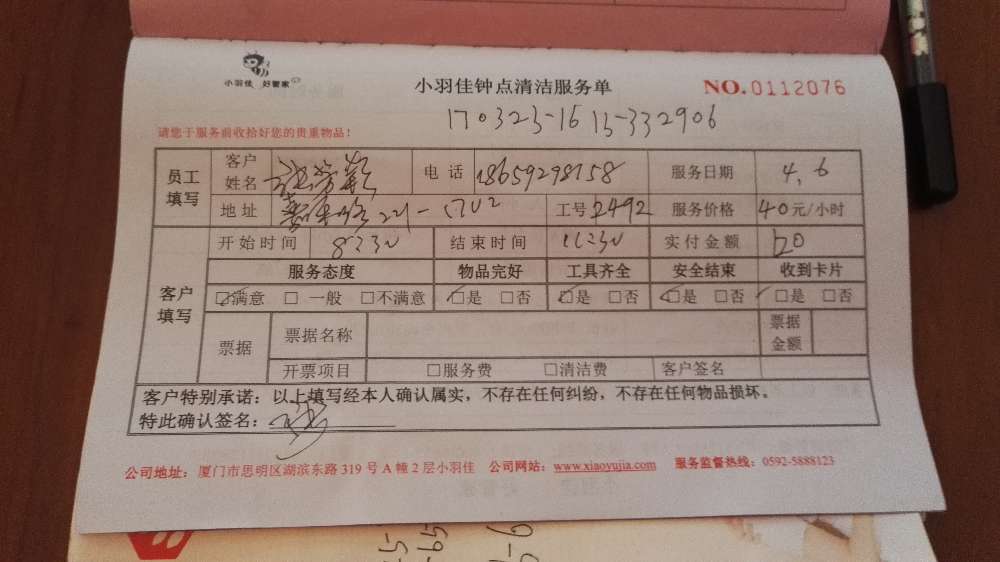 小羽佳 好管家
小羽佳钟点清洁服务单
NO.0112076
170323-16 13-332906
请您于服务前收拾好您的贵重物品!
员工填写 客户姓名 电话 18659298758 服务日期 4.6
地址 221-1702 工号 2492 服务价格 40元/小时
客户填写 开始时间 8:30 结束时间 11:30 实付金额
服务态度 物品完好 工具齐全 安全结束 收到卡片
☑满意 □一般 □不满意 ☑是 □否 ☑是 □否 ☑是 □否 ☑是 □否
票据 票据名称 票据金额
开票项目 □服务费 □清洁费 客户签名
客户特别承诺:以上填写经本人确认属实,不存在任何纠纷,不存在任何物品损坏。
特此确认签名:
公司地址:厦门市思明区湖滨东路 319 号 A 幢 2 层小羽佳 公司网站:www.xiaoyujia.com 服务监督热线:0592-5888123